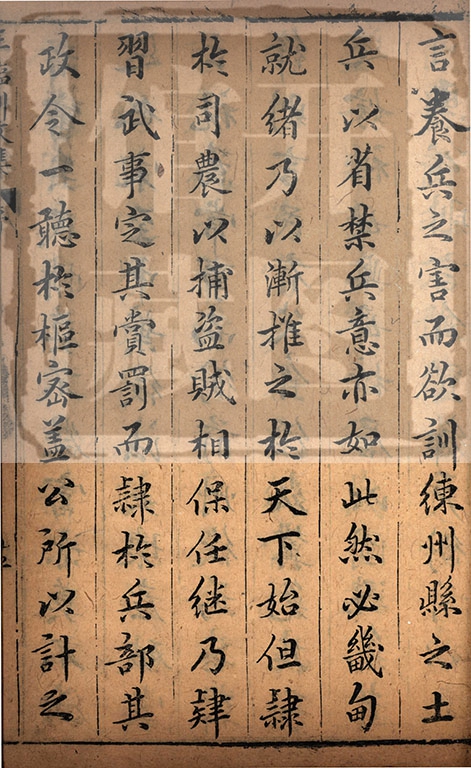 言養兵之害而欲訓練州縣之土
兵以省禁兵意亦如此然必畿甸
就緒乃以漸推之於天下始但隷
於司農以捕盗賊相保任継乃肄
習武事定其賞罰而隷於兵部其
政令一聽於樞宻盖公所以計之